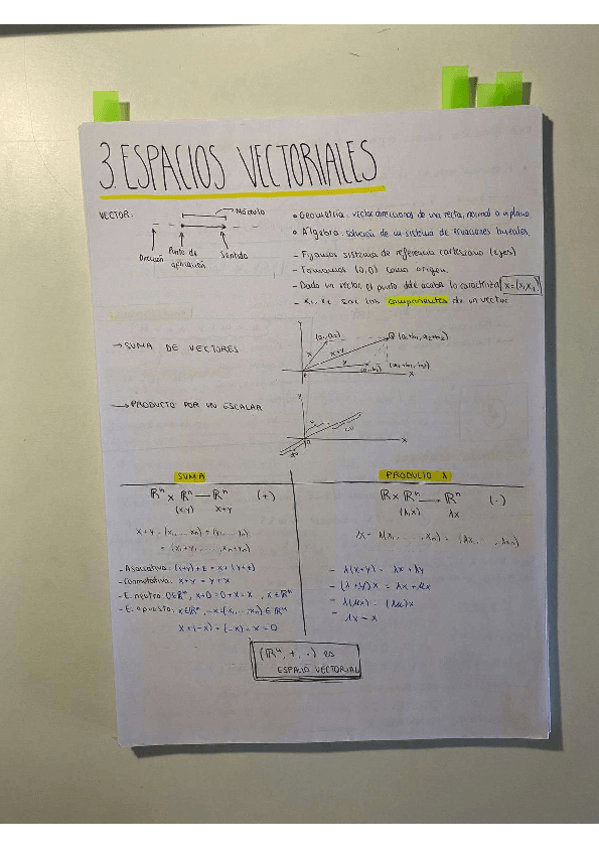 3. ESPACIOS VECTORIALES
VECTOR:
Módulo
Dirección
Punto de aplicación
Sentido
• Geometría: vector direccional de una recta, normal a un plano
• Álgebra: solución de un sistema de ecuaciones lineales
- Fijamos sistema de referencia cartesiano (ejes)
- Tomamos (0,0) como origen.
- Dado un vector el punto dde acaba lo caracteriza x=(x₁,x₂)
- x₁, x₂ son las componentes de un vector
→ SUMA DE VECTORES
x+y
x
→ PRODUCTO POR UN ESCALAR
y
x
SUMA
ℝⁿ × ℝⁿ → ℝⁿ (+)
(x,y) x+y
x+y = (x₁, ..., xₙ) + (y₁, ..., yₙ)
= (x₁+y₁, ..., xₙ+yₙ)
- Asociativa: (x+y)+z = x+(y+z)
- Conmutativa: x+y = y+x
- E. neutro: 0∈ℝⁿ, x+0=0+x=x, x∈ℝⁿ
- E. opuesto: x∈ℝⁿ, -x=(-x₁, ..., -xₙ)∈ℝⁿ
x+(-x) = (-x)+x=0
PRODUCTO λ
ℝ × ℝⁿ → ℝⁿ (·)
(λ,x) λx
λx = λ(x₁, ..., xₙ) = (λx₁, ..., λxₙ)
- λ(x+y) = λx + λy
- (λ+μ)x = λx+μx
- λ(μx) = (λμ)x
- 1x = x
(ℝⁿ, +, ·) es
ESPACIO VECTORIAL